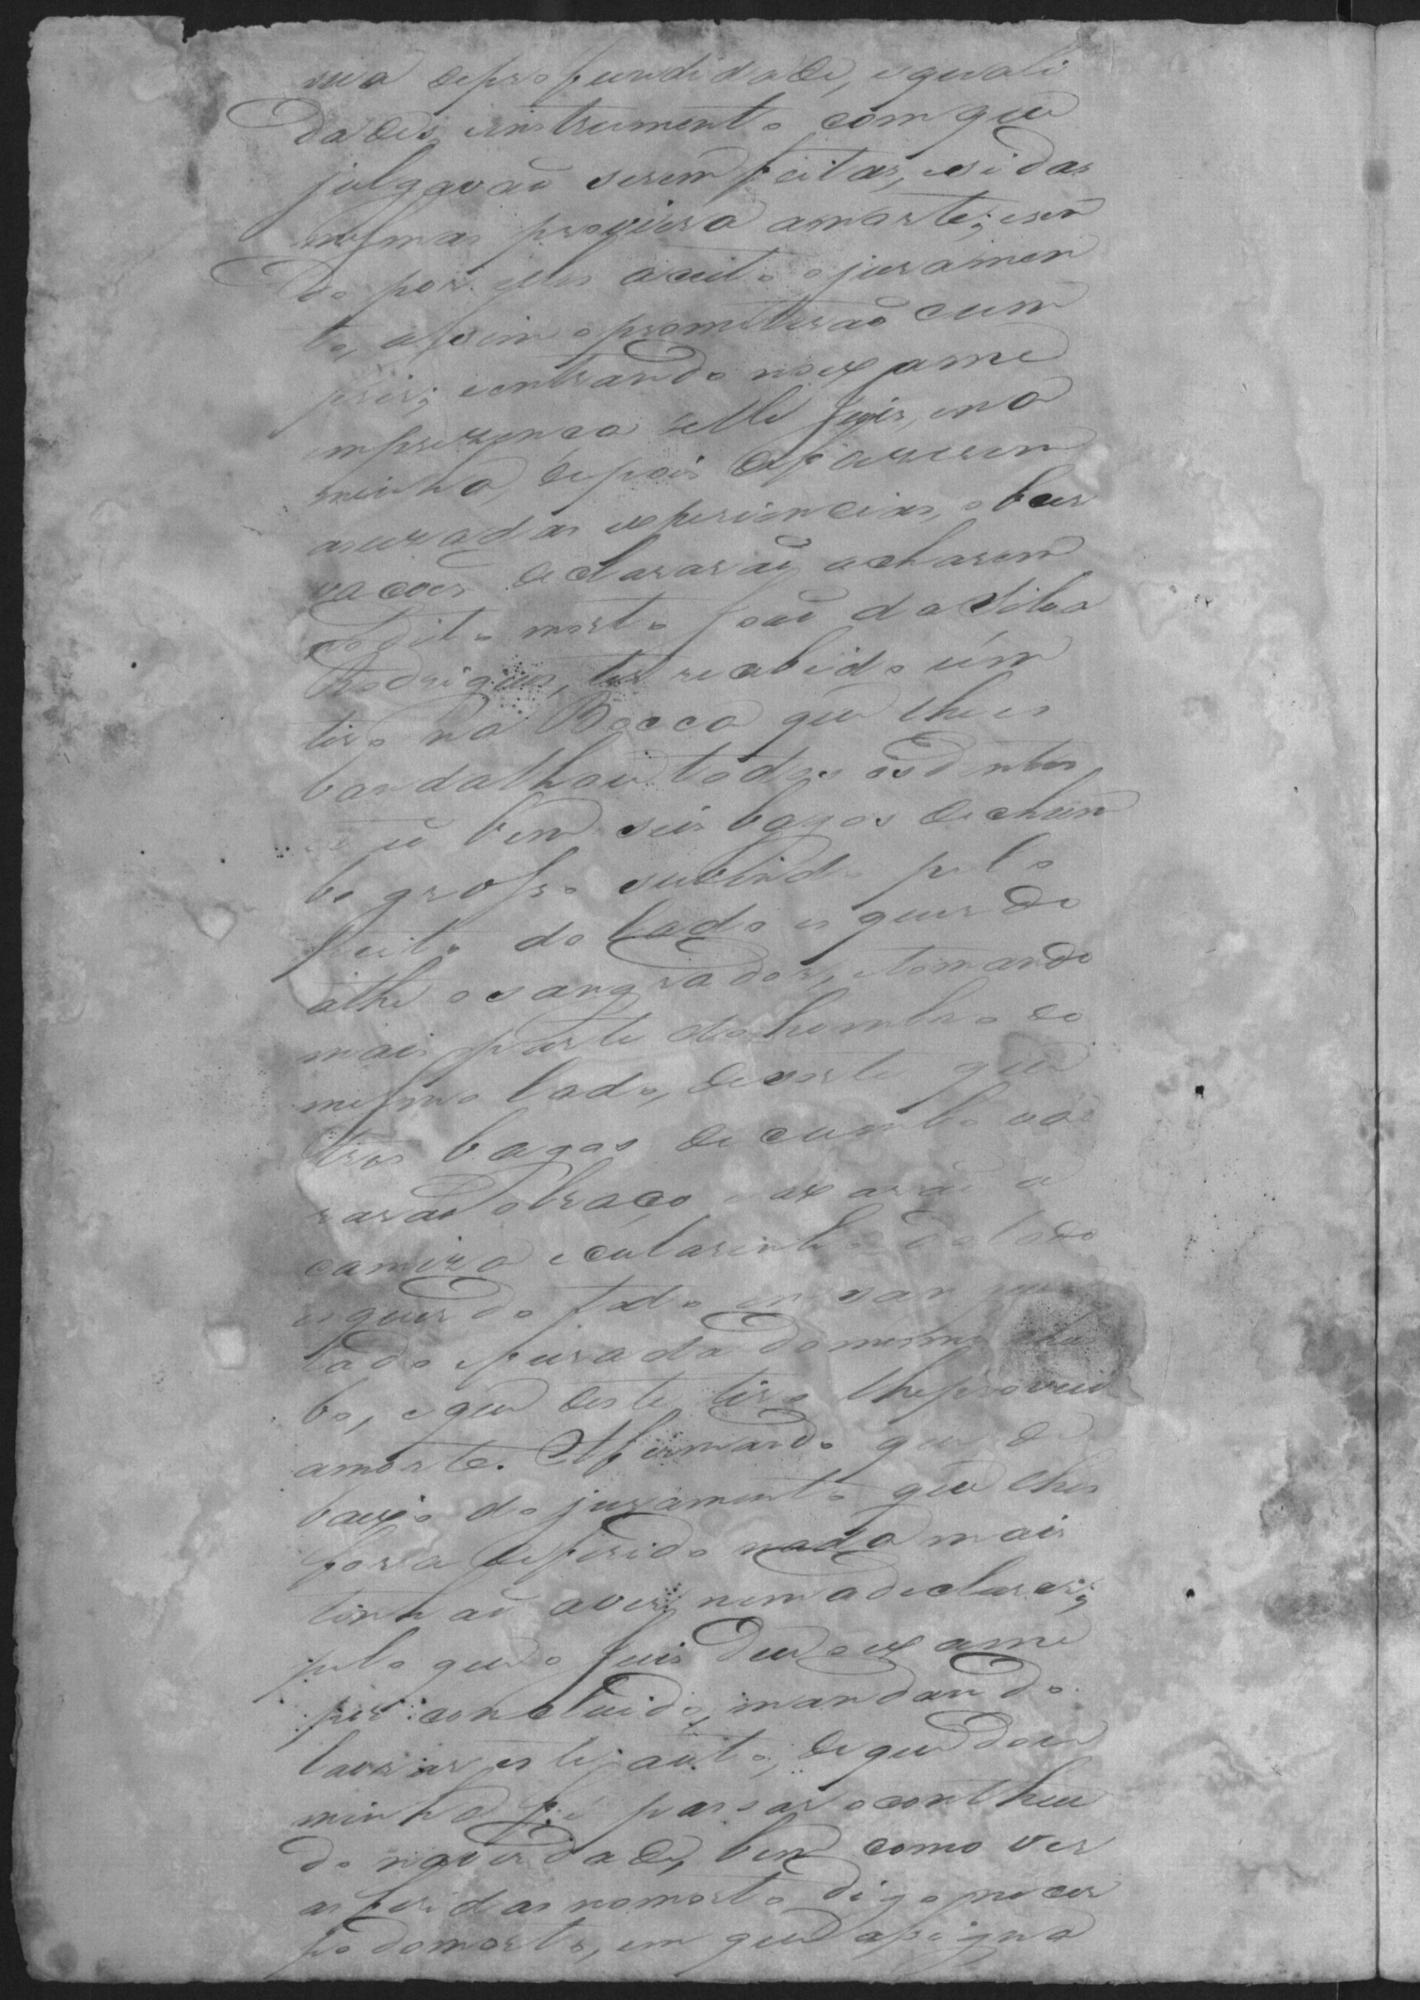 ma deprofundidade, equali
dades einstrumento com que
julgavaõ serem feitas, esi das
mesmas proviera amorte; esen
do por elles aceito ojuramen
to, assim oprometteraõ cum
prir; eentrando noexame
empresença delle Juis, ena
minha, depois defazerem
asuzadas experiencias, obser
vacoes declararaõ acharem
odito morto Joaõ da Silva
Rodrigues, ter recebido úm
tiro na Bocca que lhe es
bandalhou todos osdentes,
bem seis bagos dechum
bo grosso pelo
peito do lado esquerdo
athe osangrador, etomando
mais parte dohombro do
mesmo lado, desorte que
tres bagos dechumbo va
raraõ obraço a
camiza ecolarinho dolado
esquerdo todo ensan
tado efurada domesmo chum
bo, eque deste tiro lheproveio
amorte. Afirmando que de
baixo dojuramento que lhes
fora deferido nada mais
tinhaõ aver, nem adeclarar;
pelo que o Juis deu oexame
por concluido, mandando
lavrar este auto, deque dou
minha fé passar ocontheu
do naverdade, bem como ver
asferidas nomorto digo nocor
po domorto, em que assigna